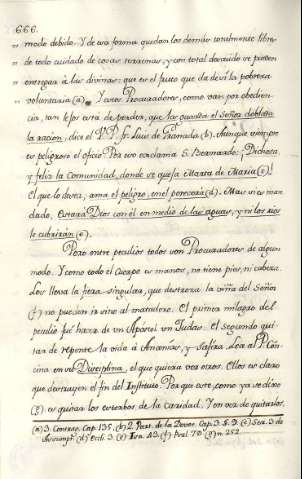 666.
modo debido. Y de esta forma quedan los demàs totalmente libres
de todo cuidado de cosas terrenas, y con total descuido se pueden
entregar à las divinas: que es el fruto que da de sì la pobreza
voluntaria (a). Y estos Procuradores, como van por obedien-
cia, tan lejos està de perder, que les guarda el Señor doblada
la racion, dice el V. P. Fr. Luis de Granada (b). Aunque siempre
es peligroso el oficio. Por eso exclama S. Bernardo: Dichosa,
y feliz la Comunidad, donde se queja Marta de Maria (c)!
El que lo desea, ama el peligro, en el perecerà (d). Mas si es man-
dado, Estarà Dios con èl en medio de las aguas, y ni los rios
le cubriràn (e).
Pero entre peculios todos son Procuradores de algun
modo. Y como todo el Cuerpo es manos, no tiene pies, ni cabeza.
Los lleva la fiera singular, que destroza la viña del Señor
(f) no pueden ir sino al matadero. El primer milagro del
peculio fuè hacer de un Apostol un Judas. El segundo qui-
tar de repente la vida à Ananìas, y Safira. Lea al P. Cón-
cina en su Disciplina, el que quiera ver otros. Ello es claro
que destruyen el fin del Instituto. Por que este, como ya se dixo
(g) es quitar los estorbos de la caridad. Y en vez de quitarlos,
(a) 3. Contrag. Cap. 135. (b) 2. Part. de la Devoc. Cap. 3. §. 9. (c) Ser. 3. de
Assumpt. (d) Eccli. 3. (e) Isai. 43. (f) Psal. 79. (g) n. 252.